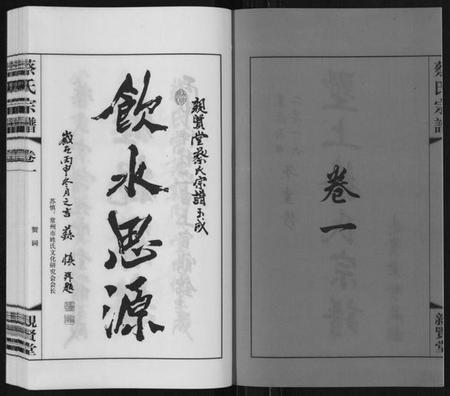 蔡氏宗譜
親賢堂
卷一
親賢堂蔡氏宗譜玉成
飲水思源
歲在丙申冬月之吉 蘇慎拜題
苏慎：常州市姓氏文化研究会会长
蔡氏宗譜
卷一
賀詞
親賢堂